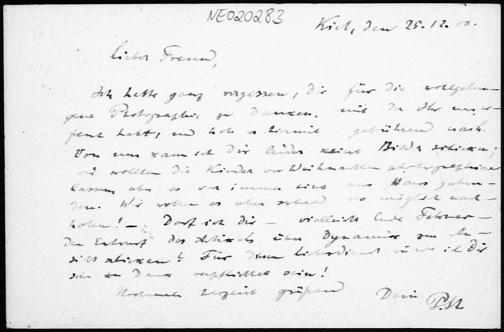 NE020283
Kiel, den 25.12.00.
Lieber Freund,
Ich hatte ganz vergessen, Dir für die wohlgelun-
gene Photographie zu danken, mit der Ihr uns er-
freut habt, und hole es hiermit gebührend nach.
Von uns kann ich Dir leider keine Bilder schicken;
wir wollten die Kinder vor Weihnachten photographieren
lassen, aber es war immer eins aus Haus gebun-
den. Wir wollen es aber sobald wo möglich nach-
holen! – Darf ich Dir – vielleicht Ende Februar –
den Entwurf des Artikels über Dynamik zur An-
sicht schicken? Für Deinen Liebesdienst würde ich Dir
sehr zu Dank verpflichtet sein!
Nochmals herzlich grüßend Dein